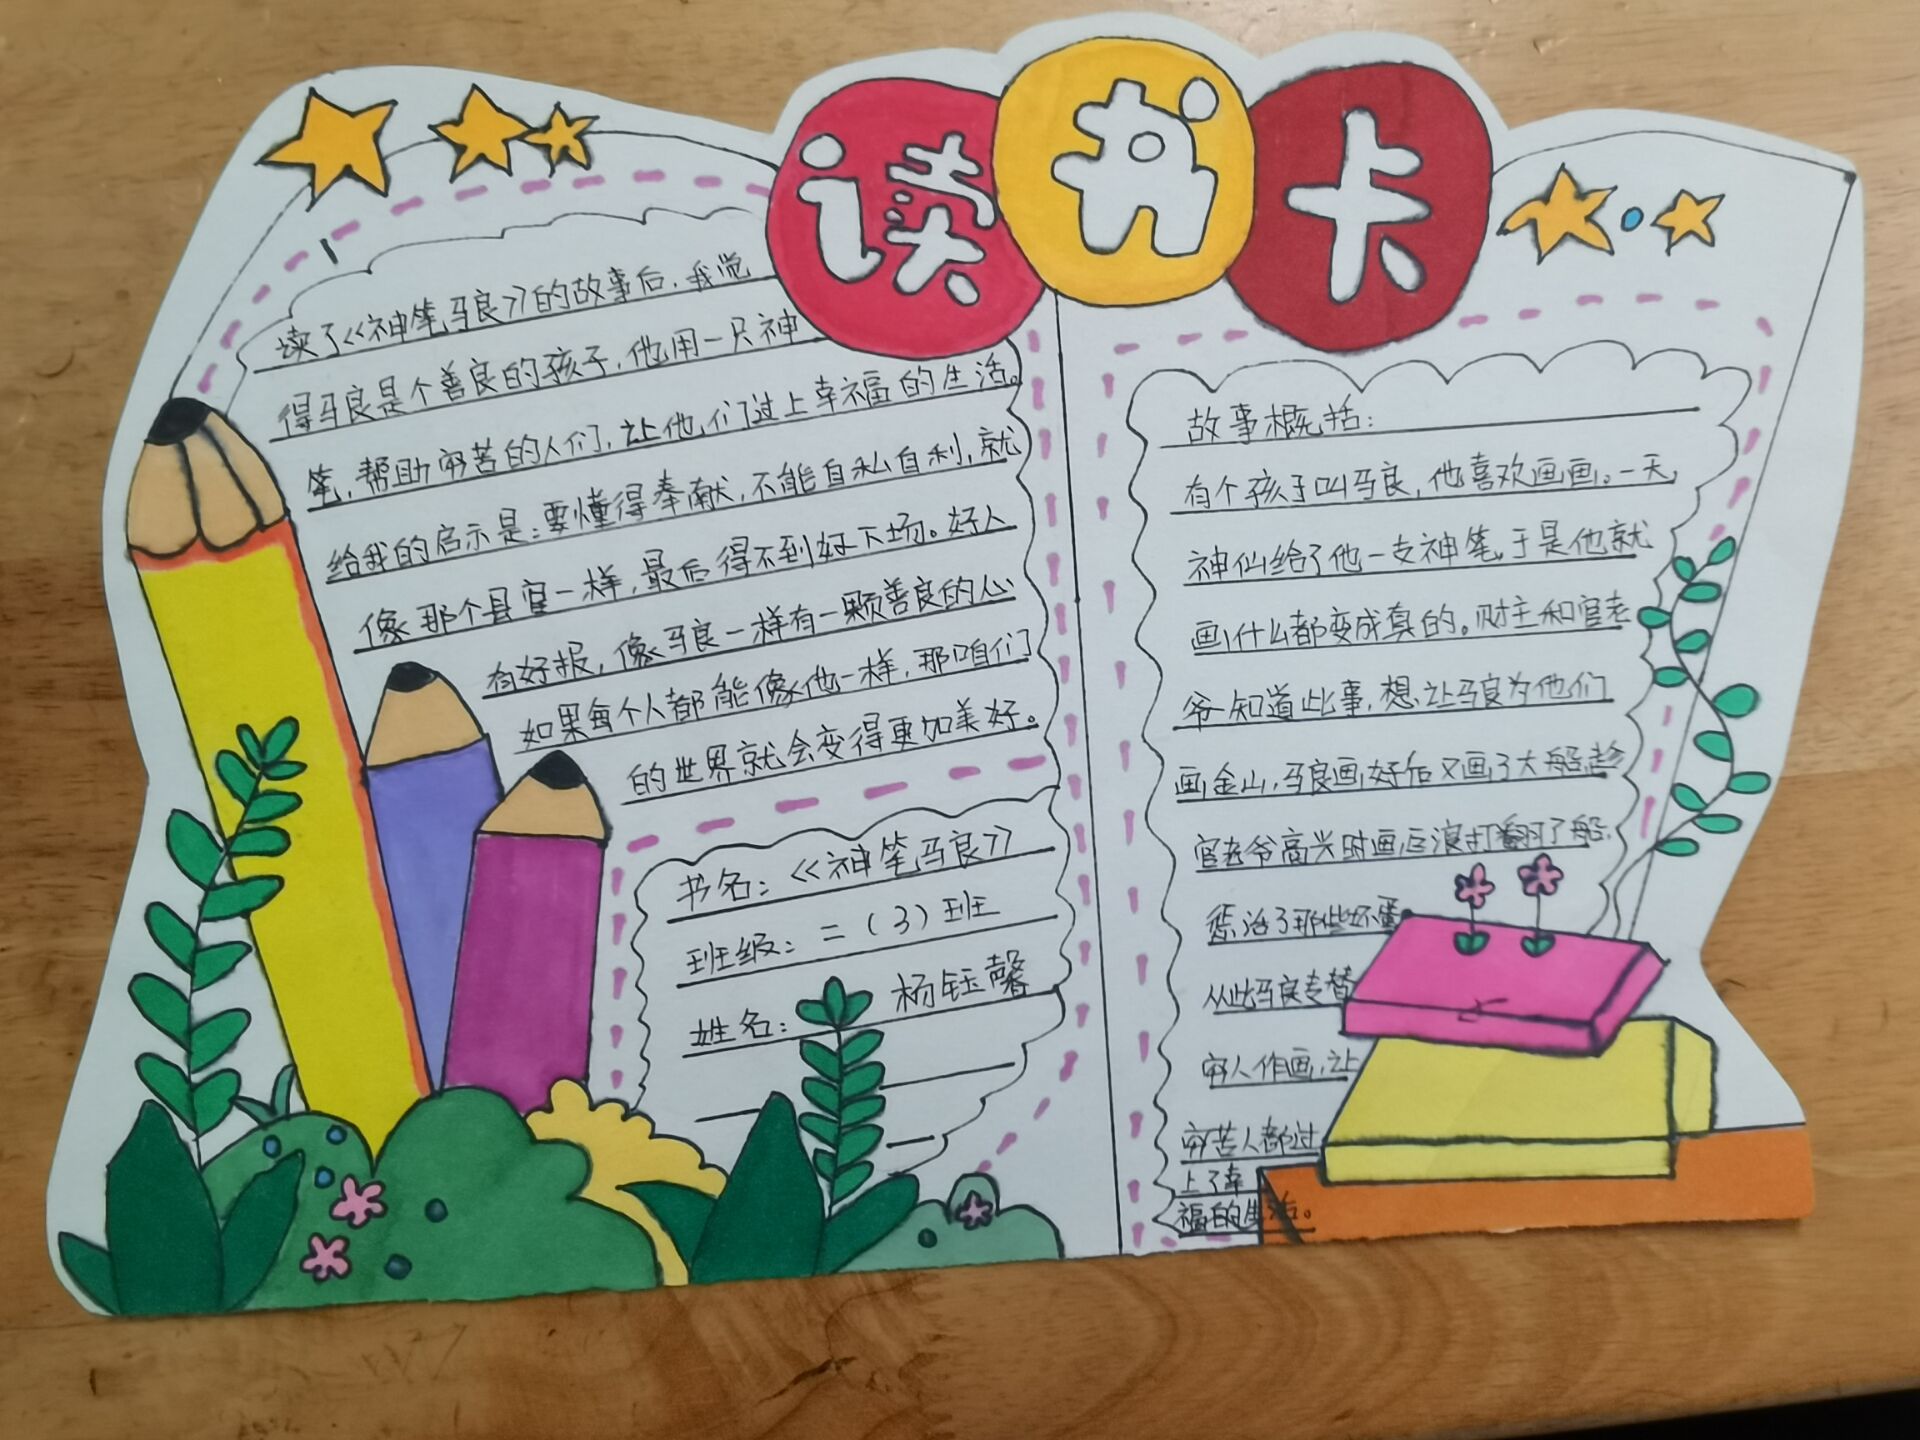 读书卡
读了《神笔马良》的故事后，我觉
得马良是个善良的孩子，他用一只神
笔，帮助穷苦的人们，让他们过上幸福的生活。
给我的启示是：要懂得奉献，不能自私自利，就
像那个县官一样，最后得不到好下场。好人
有好报，像马良一样有一颗善良的心
如果每个人都能像他一样，那咱们
的世界就会变得更加美好。
书名：《神笔马良》
班级：二（3）班
姓名：杨钰馨
故事概括：
有个孩子叫马良，他喜欢画画。一天，
神仙给了他一支神笔，于是他就
画什么都变成真的。财主和官老
爷知道此事，想让马良为他们
画金山，马良画好后又画了大船，趁
官老爷高兴时画巨浪打翻了船，
惩治了那些坏蛋
从此马良专替
穷人作画，让
穷苦人都过
上了幸
福的生活。